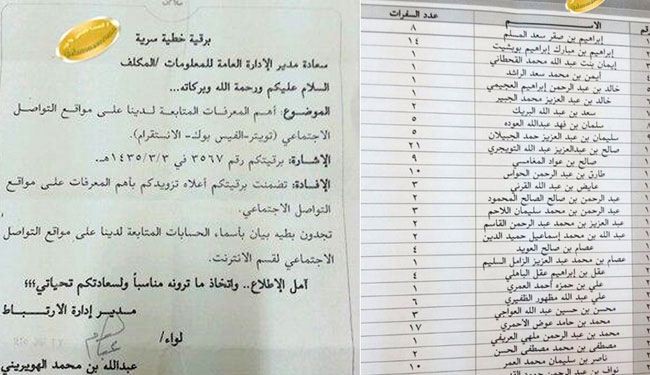 برقية خطية سرية
سعادة مدير الإدارة العامة للمعلومات / المكلف
السلام عليكم ورحمة الله وبركاته...
الموضوع: أهم المعرفات المتابعة لدينا على مواقع التواصل
الاجتماعي (تويتر- الفيس بوك- الانستقرام).
الإشارة: برقيتكم رقم ٣٥٦٧ في ١٤٣٥/٣/٣هـ.
الإفادة: تضمنت برقيتكم أعلاه تزويدكم بأهم المعرفات على مواقع
التواصل الاجتماعي.
تجدون بطيه بيان بأسماء الحسابات المتابعة لدينا على مواقع التواصل
الاجتماعي لقسم الانترنت.
آمل الإطلاع.. واتخاذ ما ترونه مناسباً ولسعادتكم تحياتي؛؛؛
مدير إدارة الارتباط
لواء/
عبدالله بن محمد الهويريني
رقم الاســـم عدد السفرات
إبراهيم بن صقر سعد المسلم ٨
إبراهيم بن مبارك إبراهيم بوبشيت ١٤
إيمان بنت عبد الله محمد القحطاني ٢
أيمن بن محمد سعد الراشد ٤
خالد بن عبد الرحمن إبراهيم العجيمي ١
خالد بن عبد العزيز محمد الجبير ٢
سعد بن عبد الله البريك ٢
سلمان بن فهد عبدالله العوده ٥
سليمان بن عبد العزيز حمد الجبيلان ٥
صالح بن عبدالعزيز عبد الله التويجري ٢١
صالح بن عواد المغامسي ٩
طارق بن عبد الرحمن الحواس ١٠
عايض بن عبد الله القرني ٣
عبد الرحمن بن صالح الصالح المحمود ٢
عبد الرحمن بن محمد سليمان اللاحم ٣
عبد العزيز بن محمد عبد الرحمن القاسم ٢
عبد الله بن محمد إسماعيل حميد الدين ٢
عصام بن صالح العويد ٤
عصام بن محمد عبد العزيز الزامل السليم ١
عقل بن إبراهيم عقل الباهلي ٤
علي بن حمزه أحمد العمري ١
علي بن عبد الله مظهور الظفيري ٦
محسن بن حسين عبد الله العواجي ٣
محمد بن حامد عوض الأحمري ١٧
محمد بن عبد الرحمن ملهي العريفي ١
مصطفى بن محمد مصطفى الحسن ٢
ناصر بن سليمان محمد العمر ١٠
نواف بن عبد الرحمن